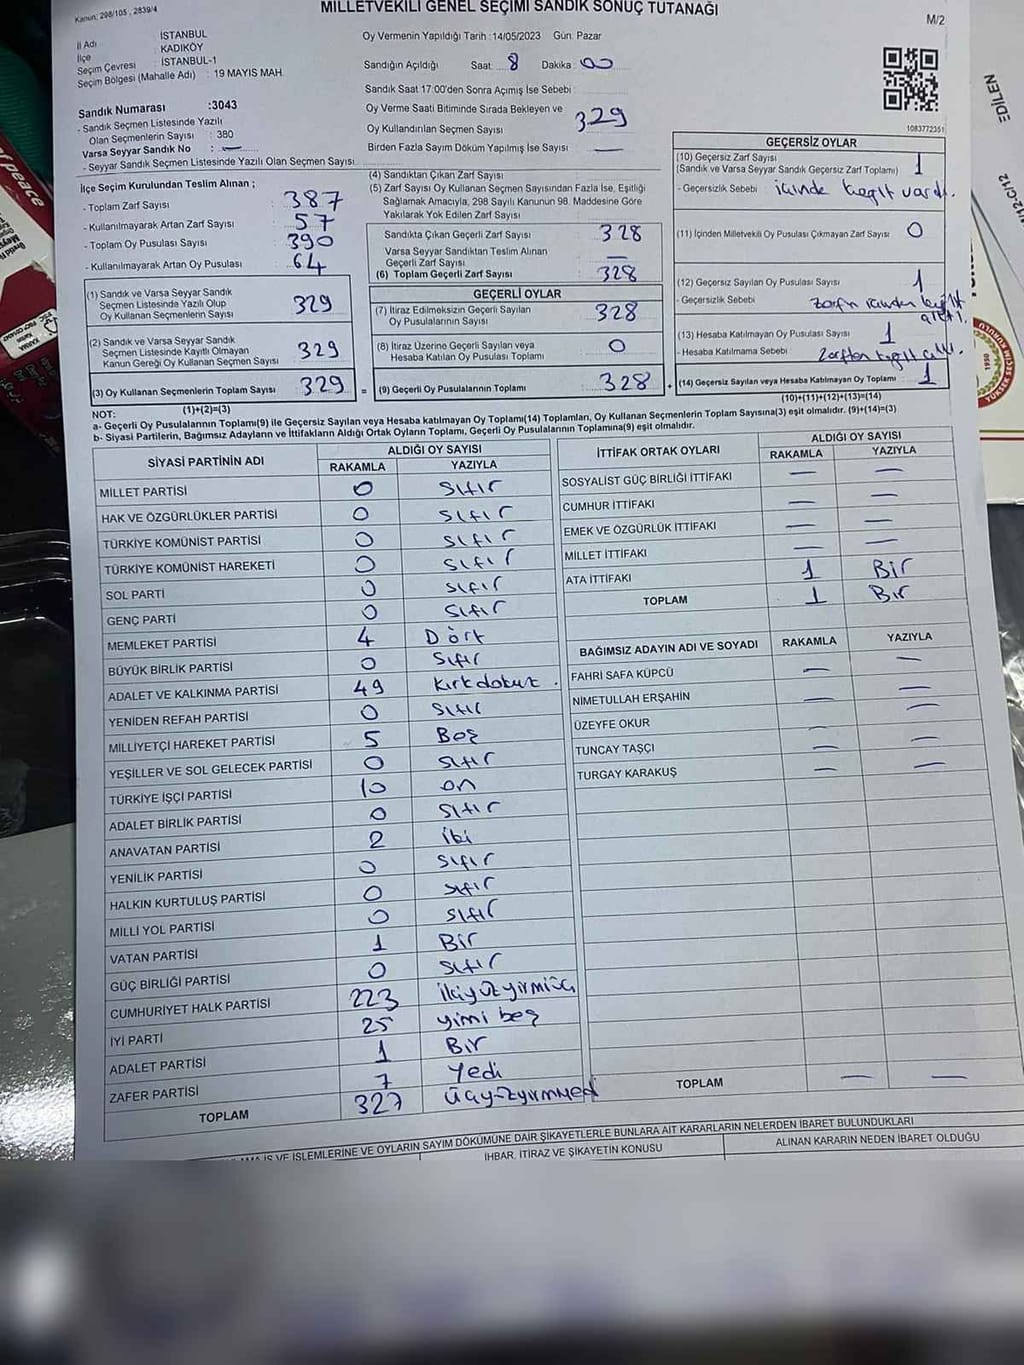 MİLLETVEKİLİ GENEL SEÇİMİ SANDIK SONUÇ TUTANAĞI
Kanun: 298/105 , 2839/4
M/2
İl Adı : İSTANBUL
İlçe : KADIKÖY
Seçim Çevresi : İSTANBUL-1
Seçim Bölgesi (Mahalle Adı) : 19 MAYIS MAH.
Sandık Numarası :3043
- Sandık Seçmen Listesinde Yazılı
Olan Seçmenlerin Sayısı : 380
Varsa Seyyar Sandık No : —
- Seyyar Sandık Seçmen Listesinde Yazılı Olan Seçmen Sayısı
Oy Vermenin Yapıldığı Tarih :14/05/2023 Gün: Pazar
Sandığın Açıldığı Saat: 8 Dakika: 00
Sandık Saat 17:00'den Sonra Açımış İse Sebebi :
Oy Verme Saati Bitiminde Sırada Bekleyen ve
Oy Kullandırılan Seçmen Sayısı : 329
Birden Fazla Sayım Döküm Yapılmış İse Sayısı : —
1083772351
İlçe Seçim Kurulundan Teslim Alınan ;
- Toplam Zarf Sayısı : 387
- Kullanılmayarak Artan Zarf Sayısı : 57
- Toplam Oy Pusulası Sayısı : 390
- Kullanılmayarak Artan Oy Pusulası : 64
(1) Sandık ve Varsa Seyyar Sandık
Seçmen Listesinde Yazılı Olup
Oy Kullanan Seçmenlerin Sayısı 329
(2) Sandık ve Varsa Seyyar Sandık
Seçmen Listesinde Kayıtlı Olmayan
Kanun Gereği Oy Kullanan Seçmen Sayısı 329
(3) Oy Kullanan Seçmenlerin Toplam Sayısı 329 =
(1)+(2)=(3)
(4) Sandıktan Çıkan Zarf Sayısı
(5) Zarf Sayısı Oy Kullanan Seçmen Sayısından Fazla İse, Eşitliği
Sağlamak Amacıyla, 298 Sayılı Kanunun 98. Maddesine Göre
Yakılarak Yok Edilen Zarf Sayısı
Sandıkta Çıkan Geçerli Zarf Sayısı 328
Varsa Seyyar Sandıktan Teslim Alınan
Geçerli Zarf Sayısı —
(6) Toplam Geçerli Zarf Sayısı 328
GEÇERLİ OYLAR
(7) İtiraz Edilmeksizin Geçerli Sayılan
Oy Pusulalarının Sayısı 328
(8) İtiraz Üzerine Geçerli Sayılan veya
Hesaba Katılan Oy Pusulası Toplamı 0
(9) Geçerli Oy Pusulalarının Toplamı 328
GEÇERSİZ OYLAR
(10) Geçersiz Zarf Sayısı
(Sandık ve Varsa Seyyar Sandık Geçersiz Zarf Toplamı) 1
- Geçersizlik Sebebi : içinde kağıt vardı.
(11) İçinden Milletvekili Oy Pusulası Çıkmayan Zarf Sayısı : 0
(12) Geçersiz Sayılan Oy Pusulası Sayısı 1
- Geçersizlik Sebebi :
(13) Hesaba Katılmayan Oy Pusulası Sayısı 1
- Hesaba Katılmama Sebebi : Zarftan kağıt çıktı.
(14) Geçersiz Sayılan veya Hesaba Katılmayan Oy Toplamı 1
(10)+(11)+(12)+(13)=(14)
NOT:
a- Geçerli Oy Pusulalarının Toplamı(9) ile Geçersiz Sayılan veya Hesaba katılmayan Oy Toplamı(14) Toplamları, Oy Kullanan Seçmenlerin Toplam Sayısına(3) eşit olmalıdır. (9)+(14)=(3)
b- Siyasi Partilerin, Bağımsız Adayların ve İttifakların Aldığı Ortak Oyların Toplamı, Geçerli Oy Pusulalarının Toplamına(9) eşit olmalıdır.
SİYASİ PARTİNİN ADI ALDIĞI OY SAYISI
RAKAMLA YAZIYLA
MİLLET PARTİSİ 0 Sıfır
HAK VE ÖZGÜRLÜKLER PARTİSİ 0 Sıfır
TÜRKİYE KOMÜNİST PARTİSİ 0 Sıfır
TÜRKİYE KOMÜNİST HAREKETİ 0 Sıfır
SOL PARTİ 0 Sıfır
GENÇ PARTİ 0 Sıfır
MEMLEKET PARTİSİ 4 Dört
BÜYÜK BİRLİK PARTİSİ 0 Sıfır
ADALET VE KALKINMA PARTİSİ 49 Kırkdokuz .
YENİDEN REFAH PARTİSİ 0 Sıfır
MİLLİYETÇİ HAREKET PARTİSİ 5 Beş
YEŞİLLER VE SOL GELECEK PARTİSİ 0 Sıfır
TÜRKİYE İŞÇİ PARTİSİ 10 on
ADALET BİRLİK PARTİSİ 0 Sıfır
ANAVATAN PARTİSİ 2 iki
YENİLİK PARTİSİ 0 Sıfır
HALKIN KURTULUŞ PARTİSİ 0 Sıfır
MİLLİ YOL PARTİSİ 0 Sıfır
VATAN PARTİSİ 1 Bir
GÜÇ BİRLİĞİ PARTİSİ 0 Sıfır
CUMHURİYET HALK PARTİSİ 223 ikiyüzyirmiüç
İYİ PARTİ 25 yimi beş
ADALET PARTİSİ 1 Bir
ZAFER PARTİSİ 7 Yedi
TOPLAM 327 üçyüzyirmiyedi
İTTİFAK ORTAK OYLARI ALDIĞI OY SAYISI
RAKAMLA YAZIYLA
SOSYALİST GÜÇ BİRLİĞİ İTTİFAKI — —
CUMHUR İTTİFAKI — —
EMEK VE ÖZGÜRLÜK İTTİFAKI — —
MİLLET İTTİFAKI — —
ATA İTTİFAKI 1 Bir
TOPLAM 1 Bir
BAĞIMSIZ ADAYIN ADI VE SOYADI RAKAMLA YAZIYLA
FAHRİ SAFA KÜPCÜ — —
NİMETULLAH ERŞAHİN — —
ÜZEYFE OKUR — —
TUNCAY TAŞÇI — —
TURGAY KARAKUŞ — —
TOPLAM — —
İŞ VE İŞLEMLERİNE VE OYLARIN SAYIM DÖKÜMÜNE DAİR ŞİKAYETLERLE BUNLARA AİT KARARLARIN NELERDEN İBARET BULUNDUKLARI
İHBAR, İTİRAZ VE ŞİKAYETİN KONUSU
ALINAN KARARIN NEDEN İBARET OLDUĞU
of peace
EDİLEN
1950